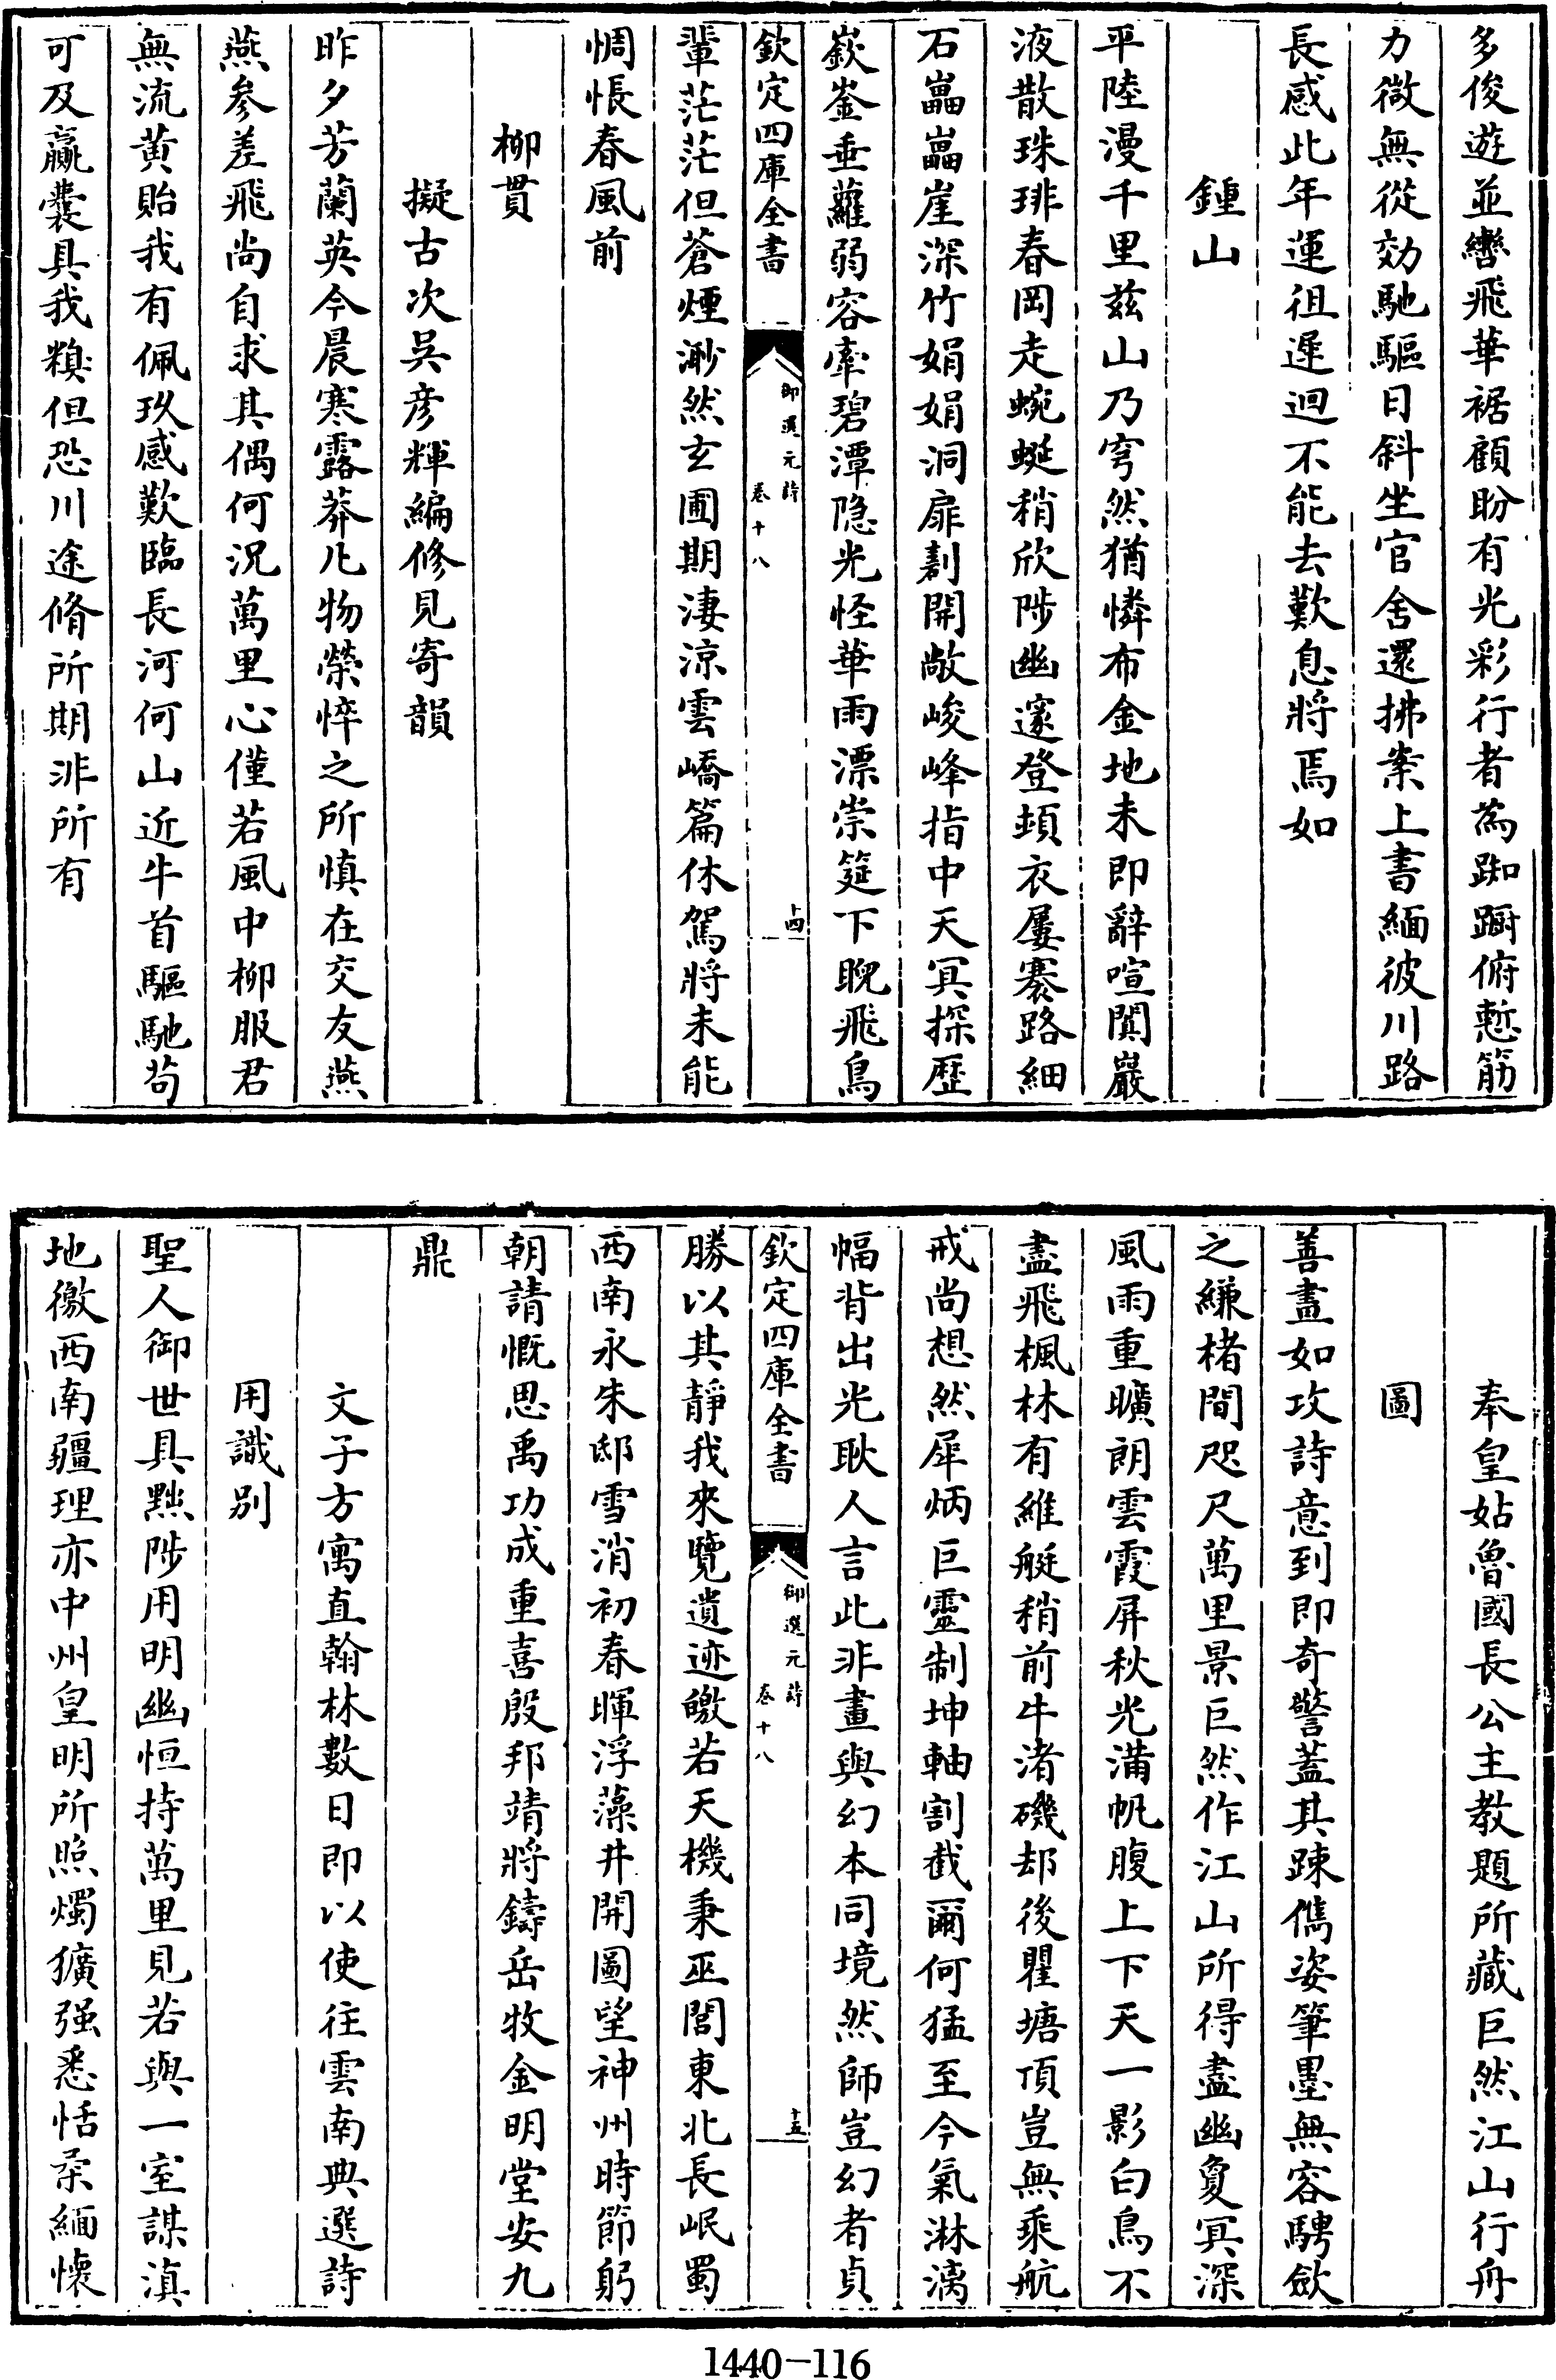 多俊遊並轡飛華裾顧盼有光彩行者為踟蹰俯慙筋
力微無從効馳驅日斜坐官舍還拂案上書緬彼川路
長感此年運徂遲迴不能去歎息將焉如
鍾山
平陸漫千里兹山乃穹然猶憐布金地未即辭喧闐巖
液散珠琲春岡走蜿蜒稍欣陟幽邃登頓衣屢褰路細
石巋巋崖深竹娟娟洞扉劃開敞峻峰指中天冥探歴
嶔崟垂蘿弱容牽碧潭隐光怪華雨漂崇筵下睨飛鳥
欽定四庫全書
御選元詩
卷十八
十四
輩茫茫但蒼煙渺然玄圃期淒涼雲嶠篇休駕將未能
惆悵春風前
柳貫
擬古次吳彦輝編修見寄韻
昨夕芳蘭英今晨寒露莽凢物榮悴之所慎在交友燕
燕參差飛尚自求其偶何況萬里心僅若風中柳服君
無流黄貽我有佩玖感歎臨長河何山近牛首驅馳茍
可及贏囊具我糗但恐川途脩所期非所有
奉皇姑魯國長公主教題所藏巨然江山行舟
圖
善畫如攻詩意到即奇警蓋其踈儁姿筆墨無容騁歛
之縑楮間咫尺萬里景巨然作江山所得盡幽敻冥深
風雨重曠朗雲霞屏秋光滿帆腹上下天一影白鳥不
盡飛楓林有維艇稍前牛渚磯却後瞿塘頂豈無乘航
戒尚想然犀炳巨靈制坤軸割截爾何猛至今氣淋漓
幅背出光耿人言此非畫與幻本同境然師豈幻者貞
欽定四庫全書
御選元詩
卷十八
十五
勝以其靜我來覽遺迹皦若天機秉巫閭東北長岷蜀
西南永朱邸雪消初春暉浮藻井開圖望神州時節躬
朝請慨思禹功成重喜殷邦靖將鑄岳牧金明堂安九
鼎
文子方寓直翰林數日即以使往雲南典選詩
用識别
聖人御世具黜陟用明幽恒持萬里見若與一室謀滇
地徼西南疆理亦中州皇明所照燭獷强悉恬柔緬懷
1440-116